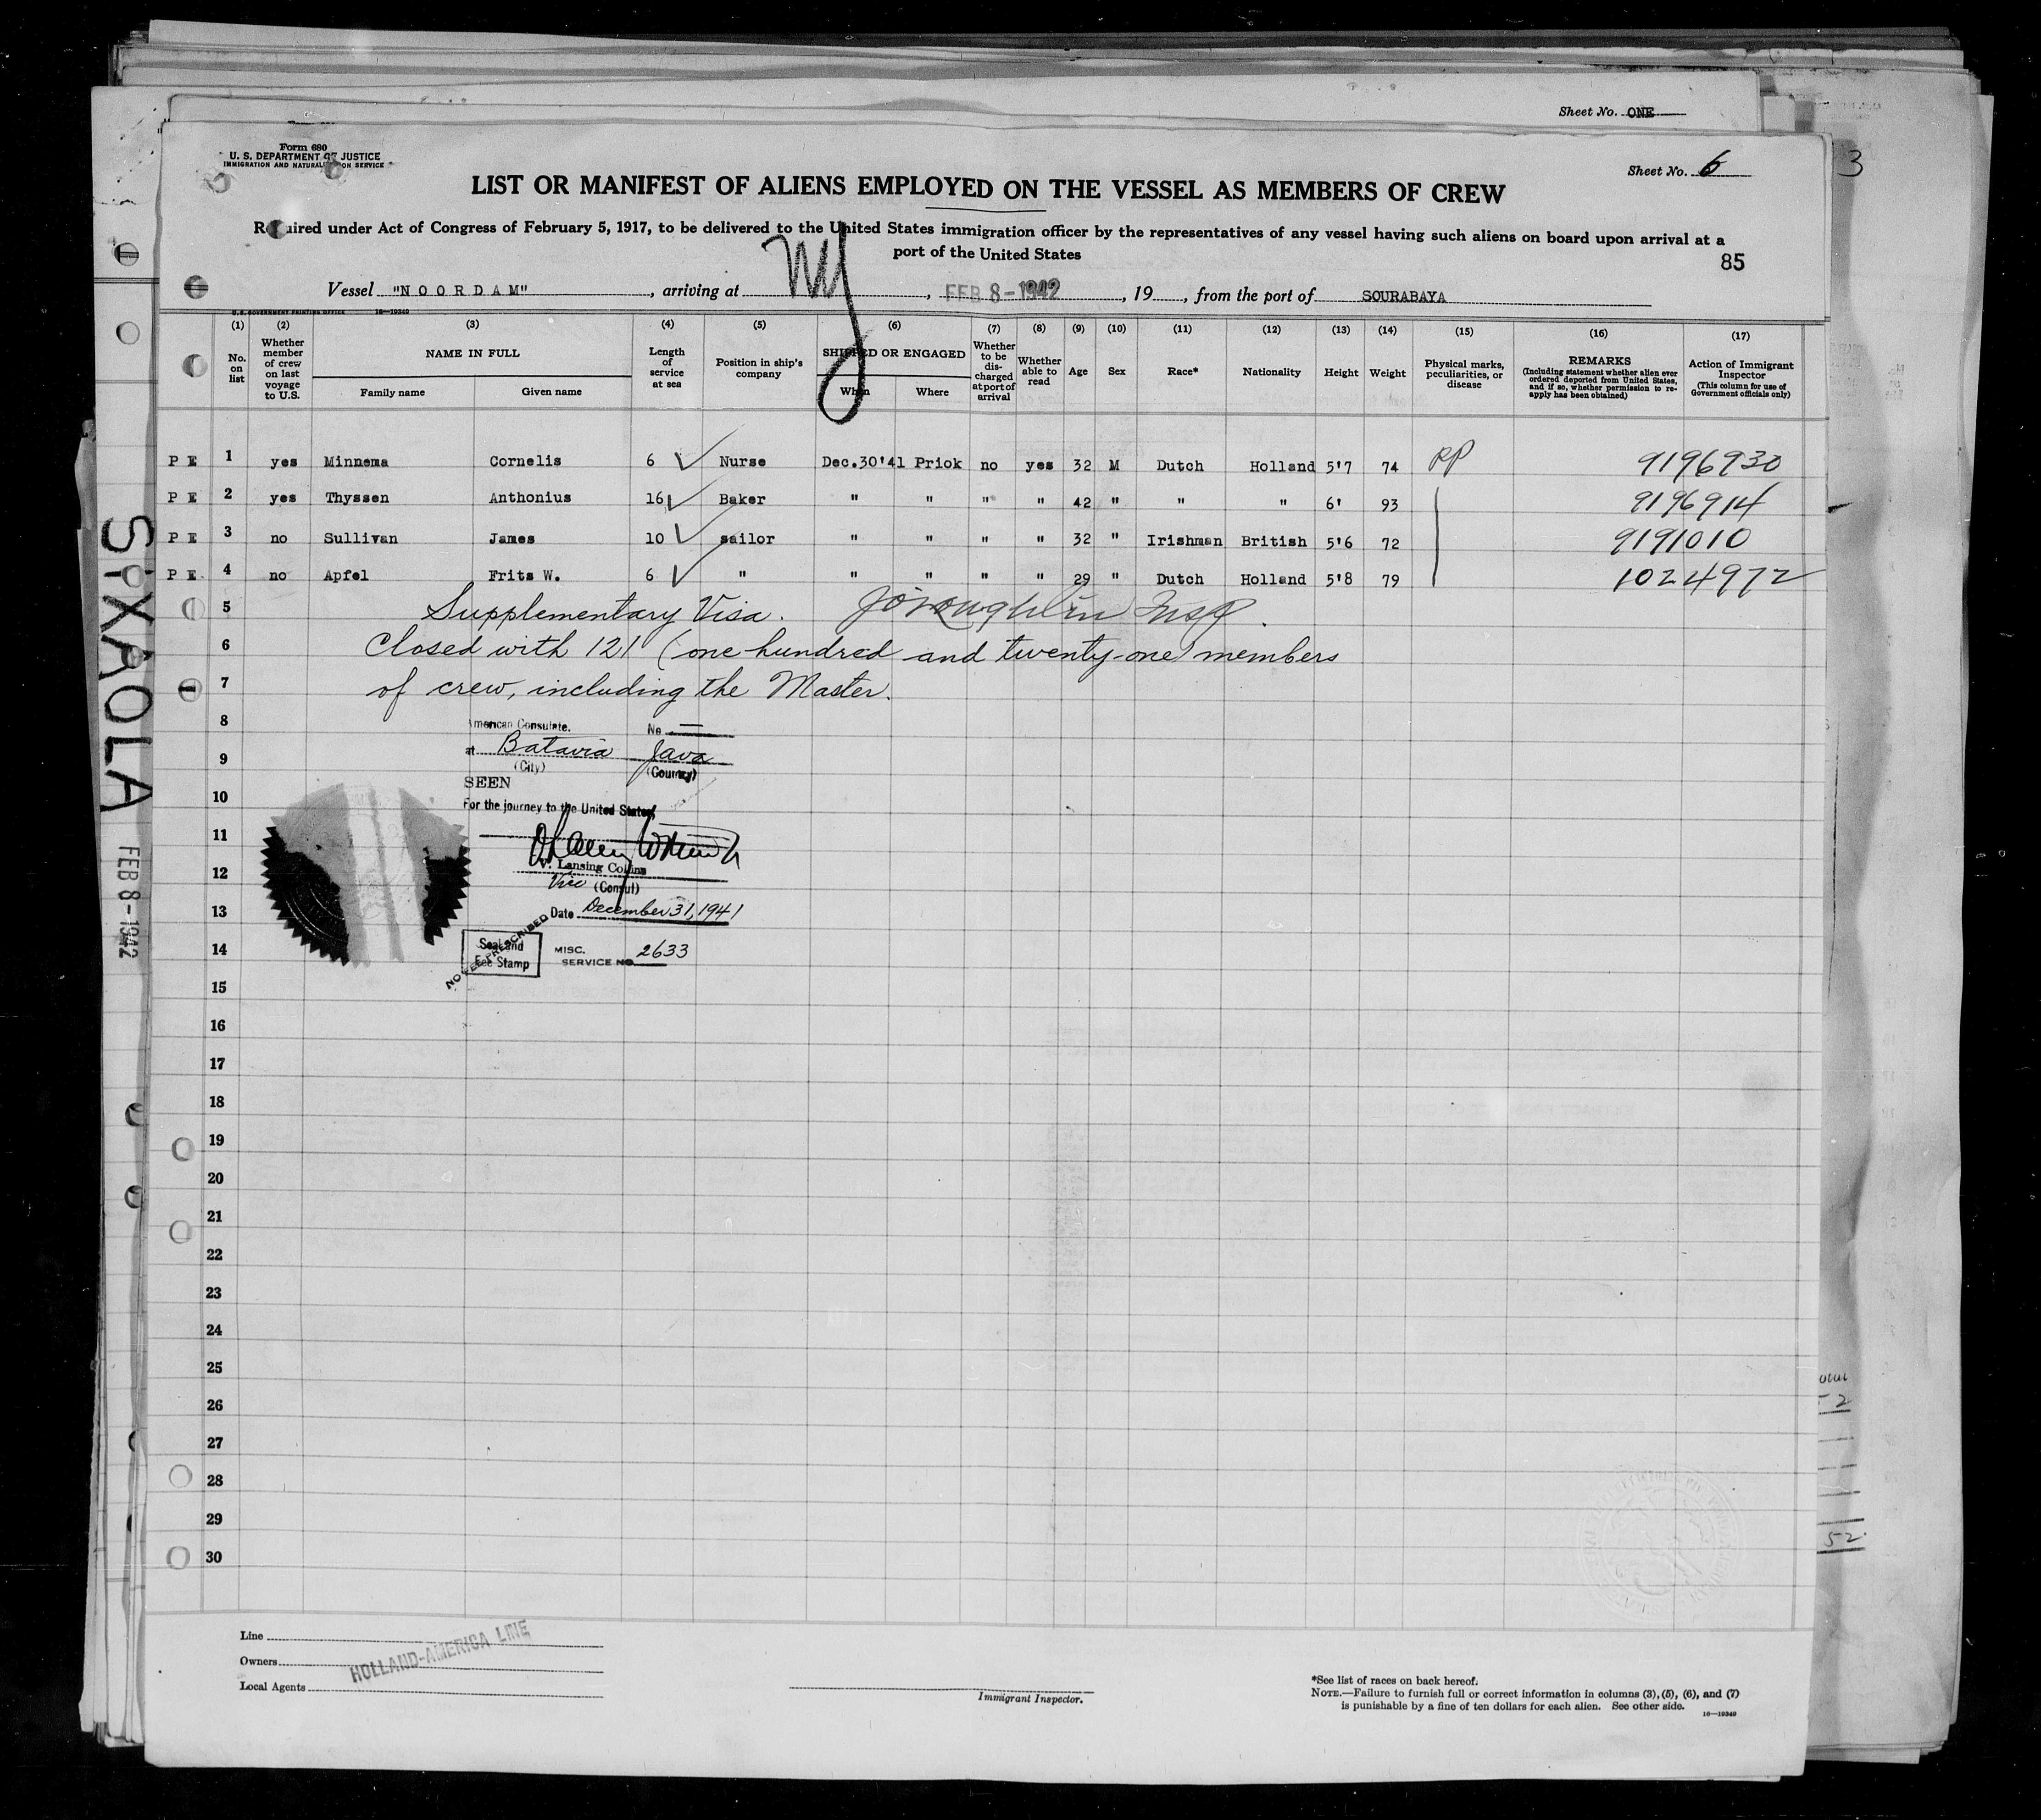 Sheet No. ONE
3
Form 680
U. S. DEPARTMENT OF JUSTICE
IMMIGRATION AND NATURALIZATION SERVICE
Sheet No. 6
LIST OR MANIFEST OF ALIENS EMPLOYED ON THE VESSEL AS MEMBERS OF CREW
Required under Act of Congress of February 5, 1917, to be delivered to the United States immigration officer by the representatives of any vessel having such aliens on board upon arrival at a
port of the United States
85
Vessel "NOORDAM", arriving at NY, FEB 8-1942, 19, from the port of SOURABAYA
U. S. GOVERNMENT PRINTING OFFICE 16—19349
(1) (2) (3) (4) (5) (6) (7) (8) (9) (10) (11) (12) (13) (14) (15) (16) (17)
No. on list
Whether member of crew on last voyage to U.S.
NAME IN FULL
Family name Given name
Length of service at sea
Position in ship's company
SHIPPED OR ENGAGED
When Where
Whether to be discharged at port of arrival
Whether able to read
Age
Sex
Race*
Nationality
Height
Weight
Physical marks, peculiarities, or disease
REMARKS
(Including statement whether alien ever ordered deported from United States, and if so, whether permission to reapply has been obtained)
Action of Immigrant Inspector
(This column for use of Government officials only)
P E 1 yes Minnema Cornelis 6 Nurse Dec.30'41 Priok no yes 32 M Dutch Holland 5'7 74 PP 9196930
P E 2 yes Thyssen Anthonius 16 Baker " " " " 42 " " " 6' 93 9196914
P E 3 no Sullivan James 10 sailor " " " " 32 " Irishman British 5'6 72 9191010
P E 4 no Apfel Frits W. 6 " " " " " 29 " Dutch Holland 5'8 79 1024972
5 Supplementary Visa. Insp.
6 Closed with 121 (one hundred and twenty-one) members
7 of crew, including the Master.
8 American Consulate. No —
9 at Batavia Java
(City) (Country)
SEEN
10 For the journey to the United States,
11
12 V. Lansing Collins
Vice (Consul)
13 Date December 31, 1941
14 Seal and Fee Stamp
NO FEE PRESCRIBED
MISC. SERVICE NO. 2633
15
16
17
18
19
20
21
22
23
24
25
26
27
28
29
30
SIXAOLA
FEB 8-1942
52
Line
Owners
Local Agents
HOLLAND-AMERICA LINE
Immigrant Inspector.
*See list of races on back hereof.
NOTE.—Failure to furnish full or correct information in columns (3), (5), (6), and (7)
is punishable by a fine of ten dollars for each alien. See other side.
16—19349